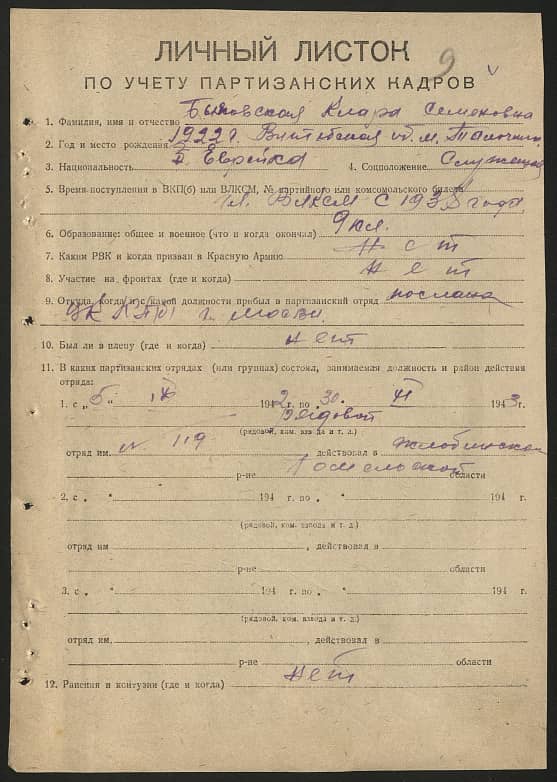 9
ЛИЧНЫЙ ЛИСТОК
ПО УЧЕТУ ПАРТИЗАНСКИХ КАДРОВ
1. Фамилия, имя и отчество Быховская Клара Семеновна
2. Год и место рождения 1922 г. Витебская об. м. Толочин
3. Национальность Еврейка 4. Соцположение Служащая
5. Время поступления в ВКП(б) или ВЛКСМ, № партийного или комсомольского билета
чл. ВЛКСМ с 1938 года
6. Образование: общее и военное (что и когда окончил) 9 кл.
7. Каким РВК и когда призван в Красную Армию Нет
8. Участие на фронтах (где и когда) Нет
9. Откуда, когда и с какой должности прибыл в партизанский отряд послана
ЦК г. Москва
10. Был ли в плену (где и когда) нет
11. В каких партизанских отрядах (или группах) состоял, занимаемая должность и район действия
отряда:
1. с „5" IX 1942 г. по „30" XI 1943 г.
Рядовой
(рядовой, ком. взвода и т. д.)
отряд им. № 119 действовал в Жлобинском
р-не Гомельской области
2. с „ " 194 г. по „ " 194 г.
(рядовой, ком. взвода и т. д.)
отряд им , действовал в
р-не области
3. с „ " 194 г. по „ " 194 г.
(рядовой, ком. взвода и т. д.)
отряд им. , действовал в
р-не области
12. Ранения и контузии (где и когда) нет